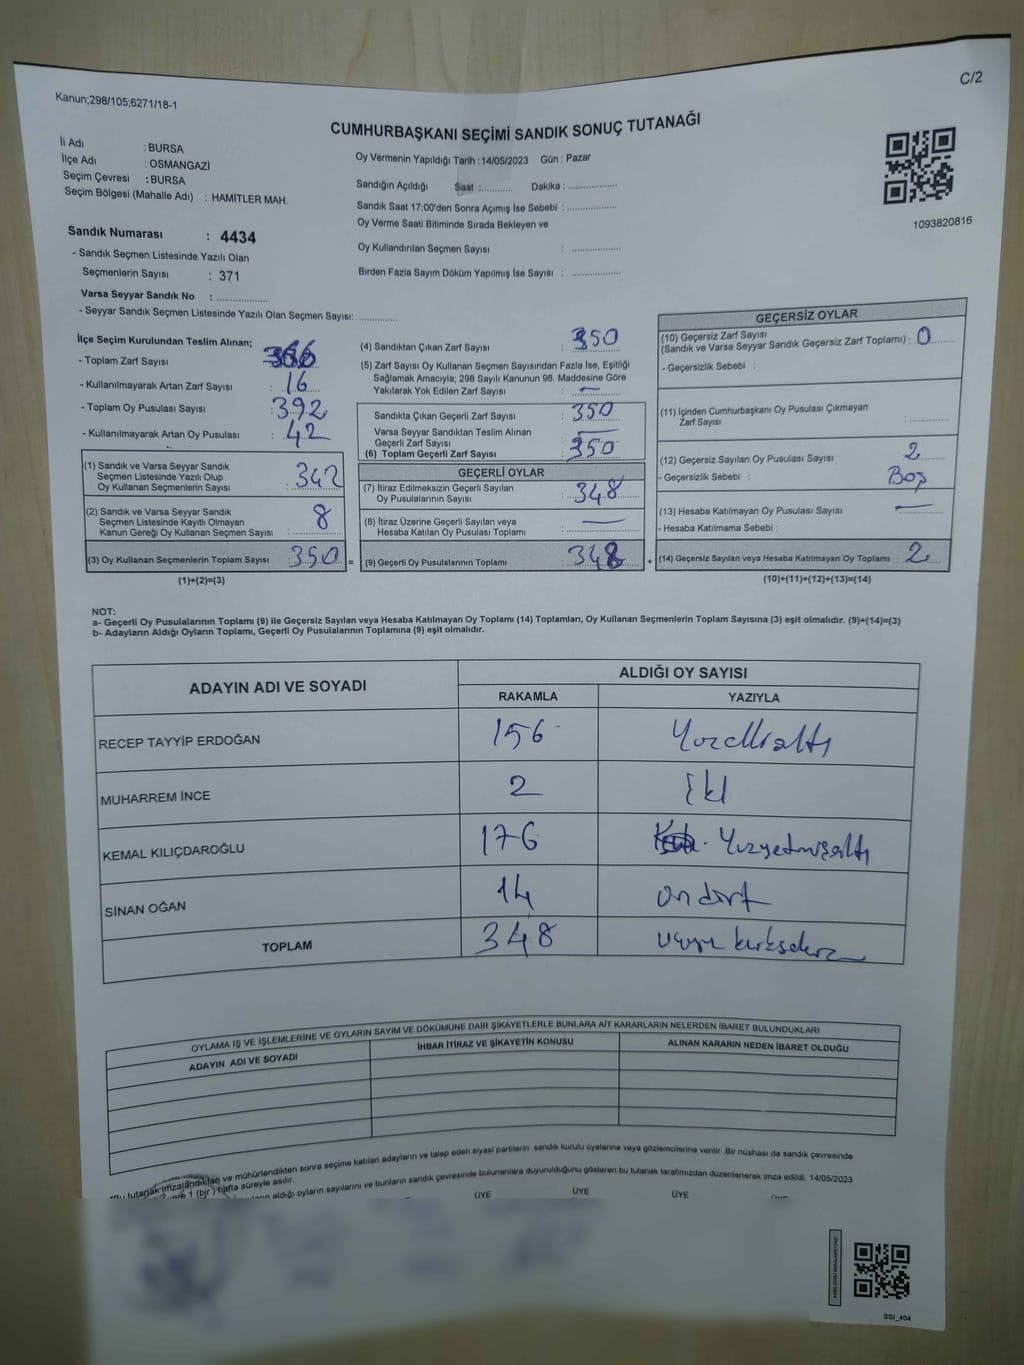 C/2
Kanun;298/105;6271/18-1
CUMHURBAŞKANI SEÇİMİ SANDIK SONUÇ TUTANAĞI
İl Adı : BURSA
İlçe Adı : OSMANGAZİ
Seçim Çevresi : BURSA
Seçim Bölgesi (Mahalle Adı) : HAMİTLER MAH.
Oy Vermenin Yapıldığı Tarih :14/05/2023 Gün : Pazar
Sandığın Açıldığı Saat :.......... Dakika : ................
Sandık Saat 17:00'den Sonra Açımış İse Sebebi : ................
Oy Verme Saati Bitiminde Sırada Bekleyen ve
Oy Kullandırılan Seçmen Sayısı : ................
Birden Fazla Sayım Döküm Yapılmış İse Sayısı : ................
1093820816
Sandık Numarası : 4434
- Sandık Seçmen Listesinde Yazılı Olan
Seçmenlerin Sayısı : 371
Varsa Seyyar Sandık No : ................
- Seyyar Sandık Seçmen Listesinde Yazılı Olan Seçmen Sayısı: ............
İlçe Seçim Kurulundan Teslim Alınan;
- Toplam Zarf Sayısı : 366
- Kullanılmayarak Artan Zarf Sayısı : 16
- Toplam Oy Pusulası Sayısı : 392
- Kullanılmayarak Artan Oy Pusulası : 42
(1) Sandık ve Varsa Seyyar Sandık
Seçmen Listesinde Yazılı Olup
Oy Kullanan Seçmenlerin Sayısı : 342
(2) Sandık ve Varsa Seyyar Sandık
Seçmen Listesinde Kayıtlı Olmayan
Kanun Gereği Oy Kullanan Seçmen Sayısı : 8
(3) Oy Kullanan Seçmenlerin Toplam Sayısı : 350 =
(1)+(2)=(3)
(4) Sandıktan Çıkan Zarf Sayısı : 350
(5) Zarf Sayısı Oy Kullanan Seçmen Sayısından Fazla İse, Eşitliği
Sağlamak Amacıyla; 298 Sayılı Kanunun 98. Maddesine Göre
Yakılarak Yok Edilen Zarf Sayısı : —
Sandıkta Çıkan Geçerli Zarf Sayısı : 350
Varsa Seyyar Sandıktan Teslim Alınan
Geçerli Zarf Sayısı : —
(6) Toplam Geçerli Zarf Sayısı : 350
GEÇERLİ OYLAR
(7) İtiraz Edilmeksizin Geçerli Sayılan
Oy Pusulalarının Sayısı : 348
(8) İtiraz Üzerine Geçerli Sayılan veya
Hesaba Katılan Oy Pusulası Toplamı : —
(9) Geçerli Oy Pusulalarının Toplamı : 348 +
GEÇERSİZ OYLAR
(10) Geçersiz Zarf Sayısı
(Sandık ve Varsa Seyyar Sandık Geçersiz Zarf Toplamı) : 0
- Geçersizlik Sebebi :
(11) İçinden Cumhurbaşkanı Oy Pusulası Çıkmayan
Zarf Sayısı : ............
(12) Geçersiz Sayılan Oy Pusulası Sayısı : 2
- Geçersizlik Sebebi : Boş
(13) Hesaba Katılmayan Oy Pusulası Sayısı : —
- Hesaba Katılmama Sebebi :
(14) Geçersiz Sayılan veya Hesaba Katılmayan Oy Toplamı : 2
(10)+(11)+(12)+(13)=(14)
NOT:
a- Geçerli Oy Pusulalarının Toplamı (9) ile Geçersiz Sayılan veya Hesaba Katılmayan Oy Toplamı (14) Toplamları, Oy Kullanan Seçmenlerin Toplam Sayısına (3) eşit olmalıdır. (9)+(14)=(3)
b- Adayların Aldığı Oyların Toplamı, Geçerli Oy Pusulalarının Toplamına (9) eşit olmalıdır.
ADAYIN ADI VE SOYADI
ALDIĞI OY SAYISI
RAKAMLA YAZIYLA
RECEP TAYYİP ERDOĞAN 156 Yüzellialtı
MUHARREM İNCE 2 İki
KEMAL KILIÇDAROĞLU 176 Yüzyetmişaltı
SİNAN OĞAN 14 on dört
TOPLAM 348 üçyüz kırksekiz
OYLAMA İŞ VE İŞLEMLERİNE VE OYLARIN SAYIM VE DÖKÜMÜNE DAİR ŞİKAYETLERLE BUNLARA AİT KARARLARIN NELERDEN İBARET BULUNDUKLARI
ADAYIN ADI VE SOYADI İHBAR İTİRAZ VE ŞİKAYETİN KONUSU ALINAN KARARIN NEDEN İBARET OLDUĞU
tutanak imzalandıktan ve mühürlendikten sonra seçime katılan adayların ve talep eden siyasi partilerin sandık kurulu üyelerine veya gözlemcilerine verilir. Bir nüshası da sandık çevresinde
1 (bir) hafta süreyle asılır.
aldığı oyların sayılarını ve bunların sandık çevresinde bulunanlara duyurulduğunu gösteren bu tutanak tarafımızdan düzenlenerek imza edildi. 14/05/2023
ÜYE ÜYE ÜYE
SSI_404